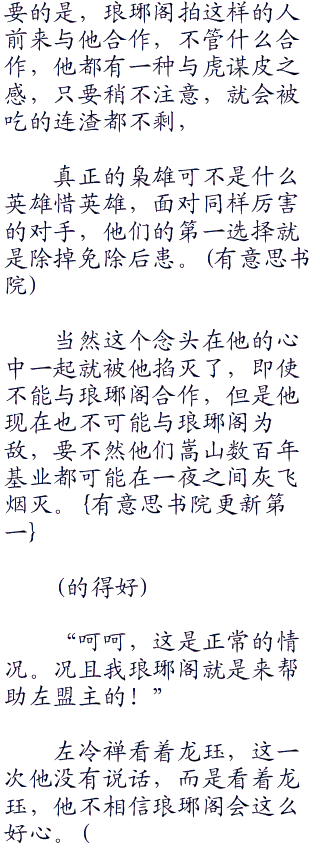 要的是，琅琊阁拍这样的人
前来与他合作，不管什么合
作，他都有一种与虎谋皮之
感，只要稍不注意，就会被
吃的连渣都不剩，
真正的枭雄可不是什么
英雄惜英雄，面对同样厉害
的对手，他们的第一选择就
是除掉免除后患。(有意思书
院)
当然这个念头在他的心
中一起就被他掐灭了，即使
不能与琅琊阁合作，但是他
现在也不可能与琅琊阁为
敌，要不然他们嵩山数百年
基业都可能在一夜之间灰飞
烟灭。{有意思书院更新第
一}
(的得好)
“呵呵，这是正常的情
况。况且我琅琊阁就是来帮
助左盟主的！”
左冷禅看着龙珏，这一
次他没有说话，而是看着龙
珏，他不相信琅琊阁会这么
好心。(